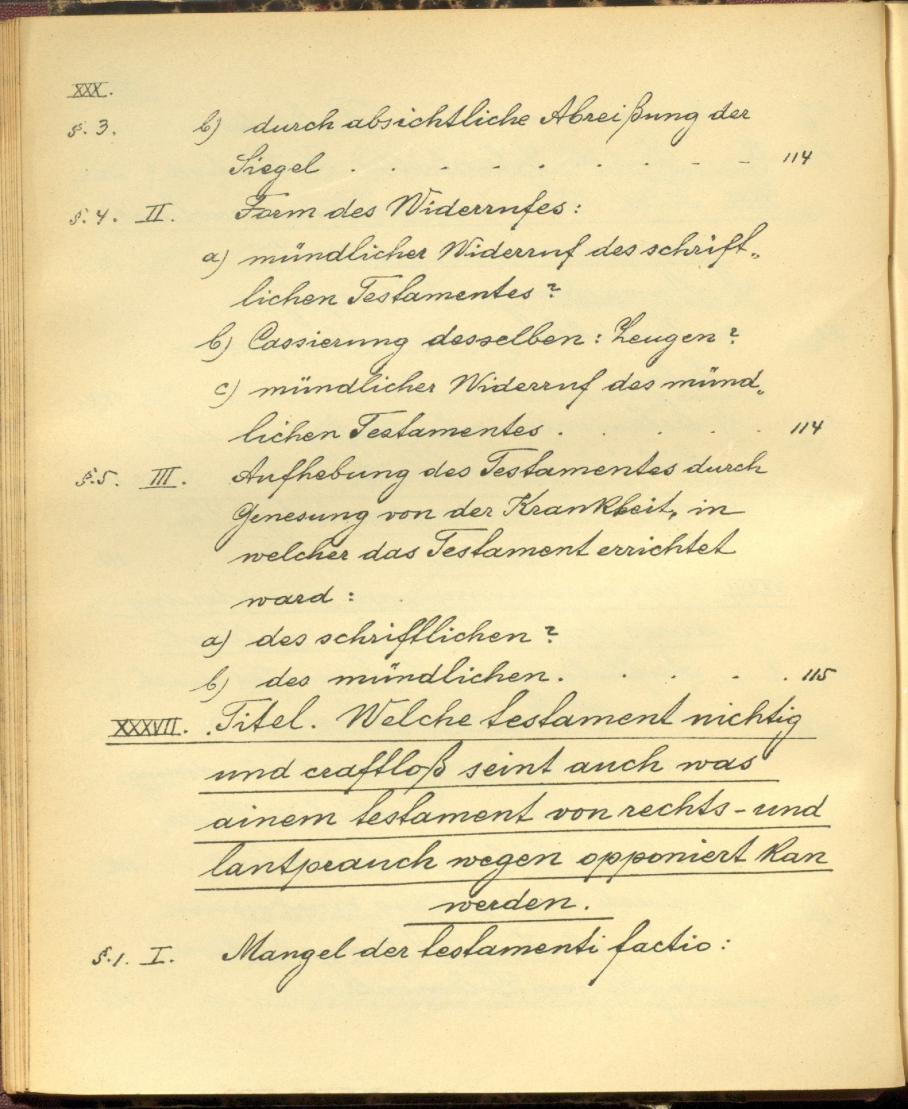 XXX.
§. 3. b) durch absichtliche Abreißung der
Siegel . . . . . . . . . 114
§. 4. II. Form des Widerrufes:
a) mündlicher Widerruf des schrift„
lichen Testamentes?
b) Cassierung desselben: Zeugen?
c) mündlicher Widerruf des münd„
lichen Testamentes . . . . 114
§. 5. III. Aufhebung des Testamentes durch
Genesung von der Krankheit, in
welcher das Testament errichtet
ward :
a) des schriftlichen?
b) des mündlichen. . . . . . 115
XXXVII. Titel. Welche testament nichtig
und craftloß seint auch was
ainem testament von rechts- und
lantprauch wegen opponiert kan
werden.
§. 1. I. Mangel der testamenti factio: